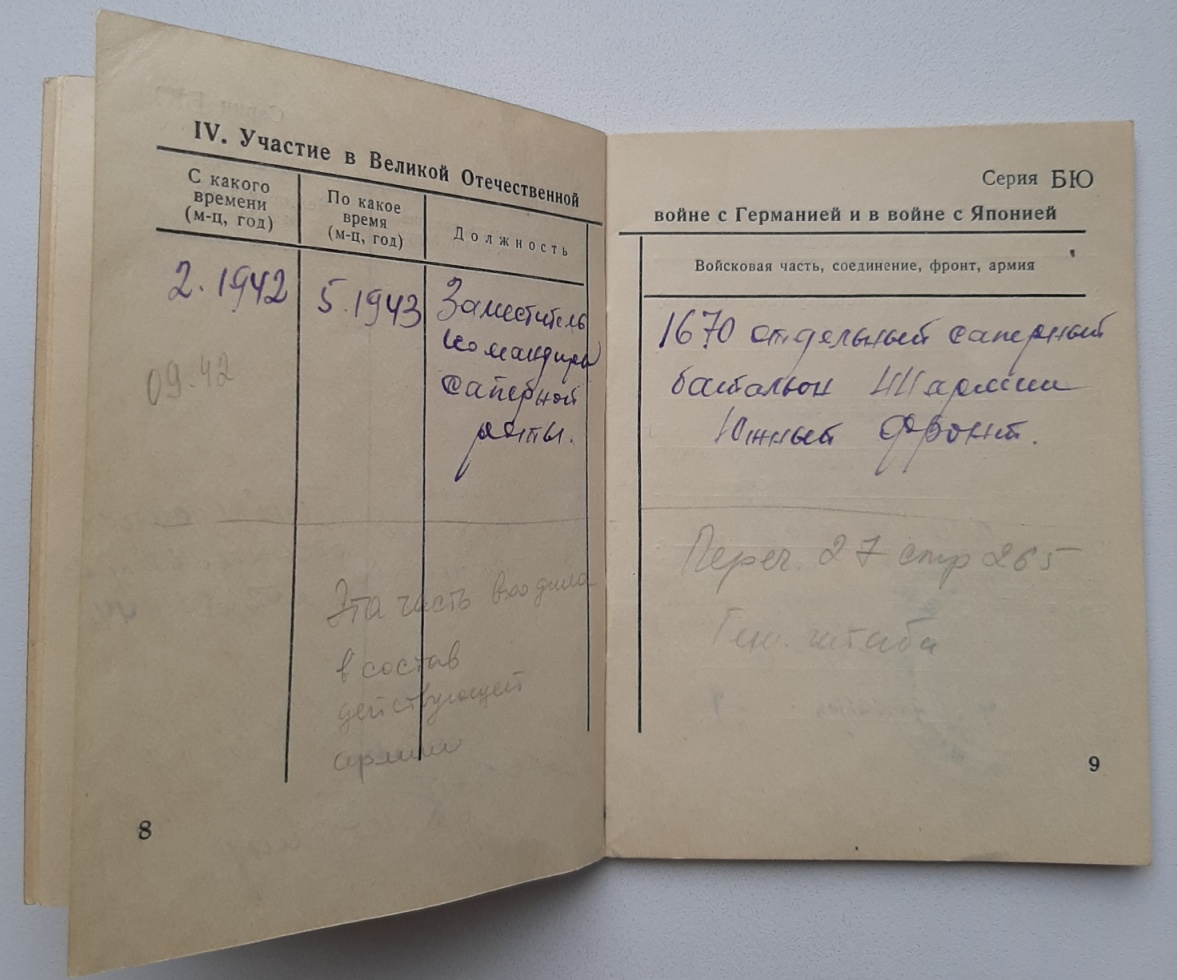 IV. Участие в Великой Отечественной
С какого
времени
(м-ц, год)
По какое
время
(м-ц, год)
Должность
2.1942
5.1943
Заместитель
командира
саперной
роты.
09.42
Эта часть входила
в состав
действующей
армии
8
Серия БЮ
войне с Германией и в войне с Японией
Войсковая часть, соединение, фронт, армия
1670 отдельный саперный
батальон 44 армии
Южный фронт.
Переч. 27 стр 265
Ген. штаба
9